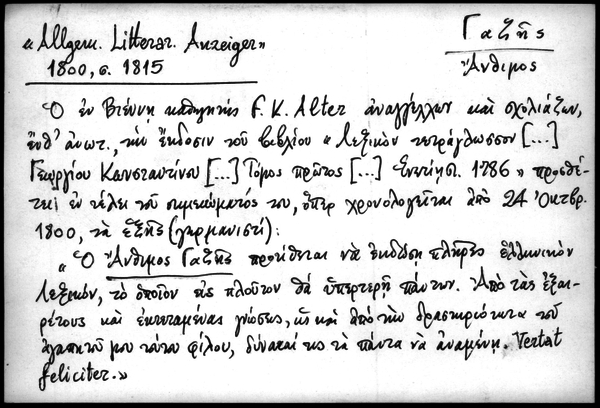 «Allgem. Litterar. Anzeiger»
1800, σ. 1815
Γαζῆς
Ἄνθιμος
Ὁ ἐν Βιέννῃ καθηγητὴς F. K. Alter ἀναγγέλλων καὶ σχολιάζων,
ἔνθ' ἀνωτ., τὴν ἔκδοσιν τοῦ βιβλίου «Λεξικὸν τετράγλωσσον [...]
Γεωργίου Κωνσταντίνου [...] Τόμος πρῶτος [...] Ἐνετίησι. 1786» προσθέ-
τει ἐν τέλει τοῦ σημειώματός του, ὅπερ χρονολογεῖται ἀπὸ 24 Ὀκτβρ.
1800, τὰ ἑξῆς (γερμανιστί):
«Ὁ Ἄνθιμος Γαζῆς προτίθεται νὰ ἐκδώσῃ πλῆρες ἑλληνικὸν
λεξικόν, τὸ ὁποῖον εἰς πλοῦτον θὰ ὑπερτερῇ πάντων. Ἀπὸ τὰς ἐξαι-
ρέτους καὶ ἐκτεταμένας γνώσεις, ὡς καὶ ἀπὸ τὴν δραστηριότητα τοῦ
ἀγαπητοῦ μου τούτου φίλου, δύναταί τις τὰ πάντα νὰ ἀναμένῃ. Vertat
feliciter.»